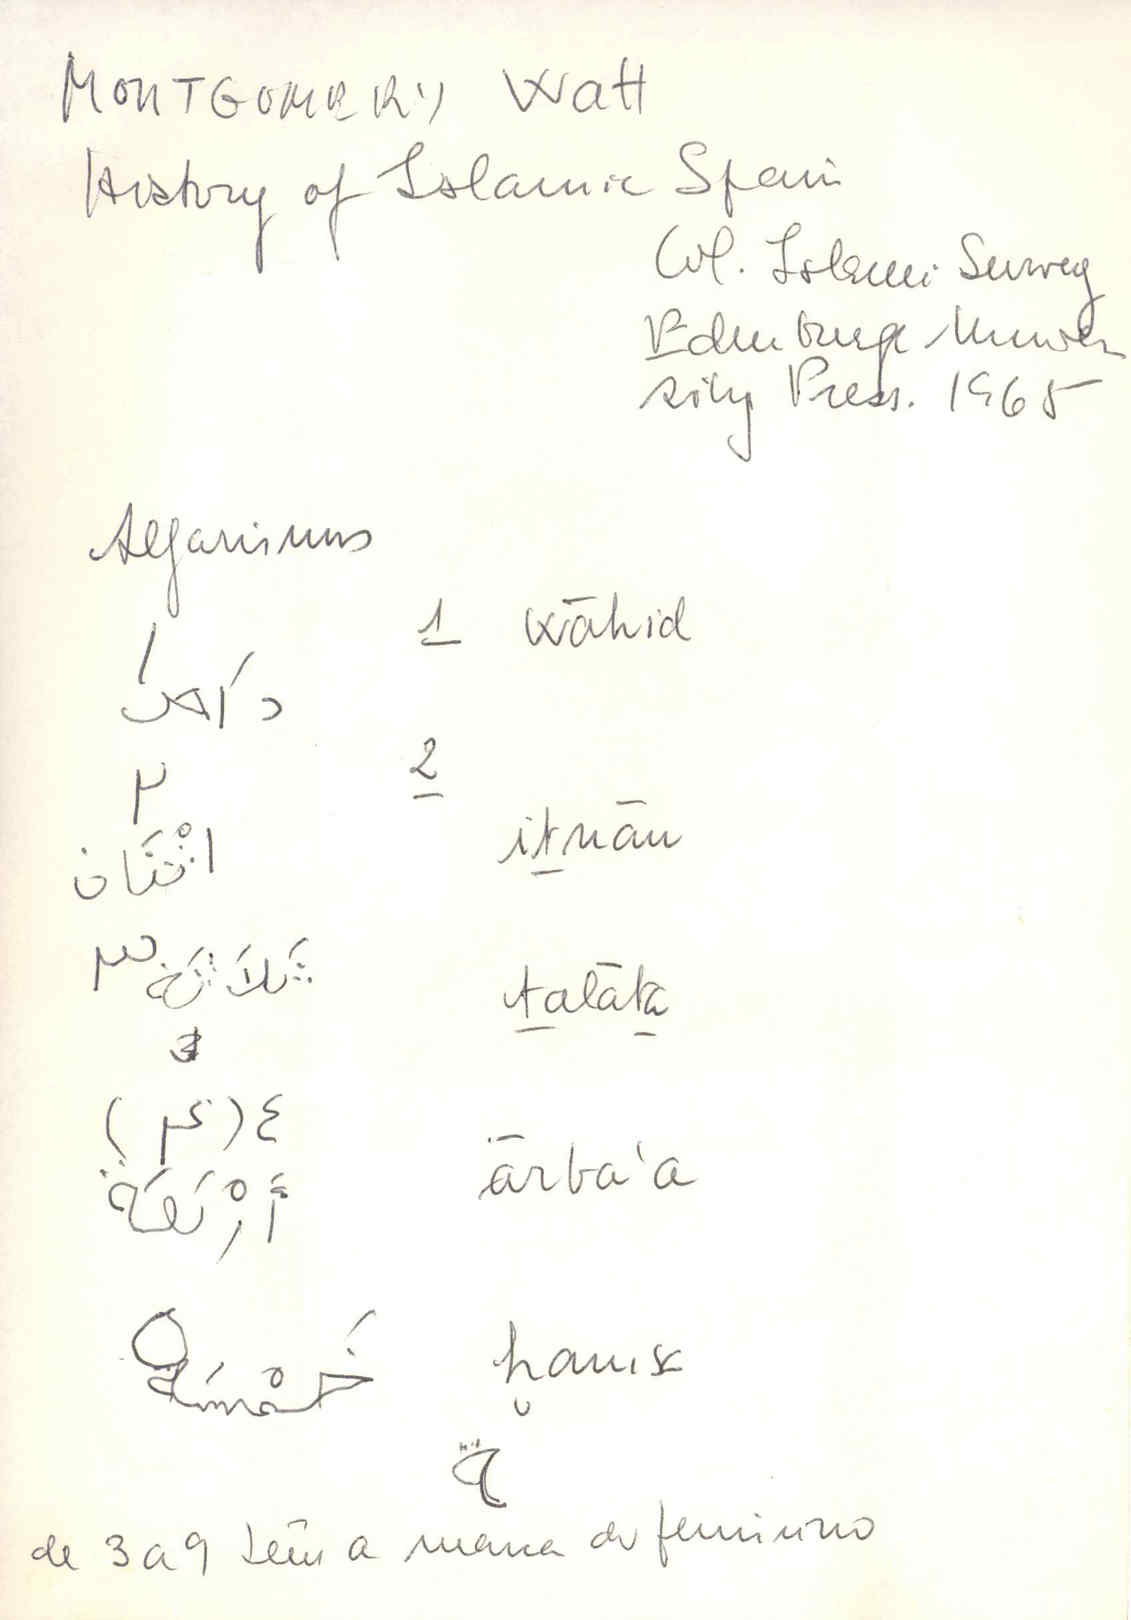 MONTGOMERY Watt
History of Islamic Spain
Col. Islamic Survey
Edinburgh Univer
sity Press. 1965
Algarismos
١ 1 wāhid
٢ 2
اثْنَان iṯnān
٣ ثَلاَثَة ṯalāṯa
3
٤ (۴)
أَرْبَعَة ārba'a
خَمْسَة
ة
de 3 a 9 têm a marca do feminino